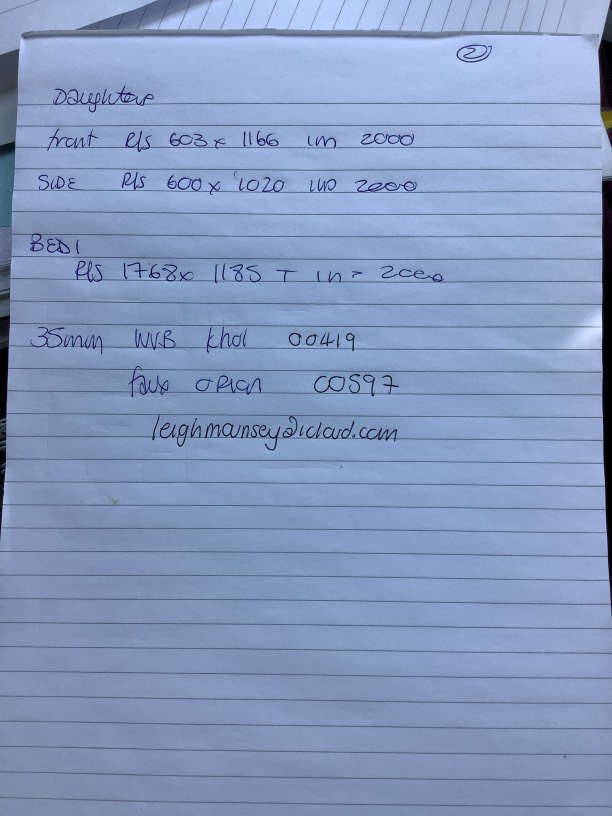 2
Daughters
front RIS 603 x 1166 in 2000
SIDE RIS 600 x 1020 in 2000
BED 1
RIS 1768 x 1185 T in = 2000
35mm WVB Khol 00419
faux orian 00597
leighmounsey@icloud.com